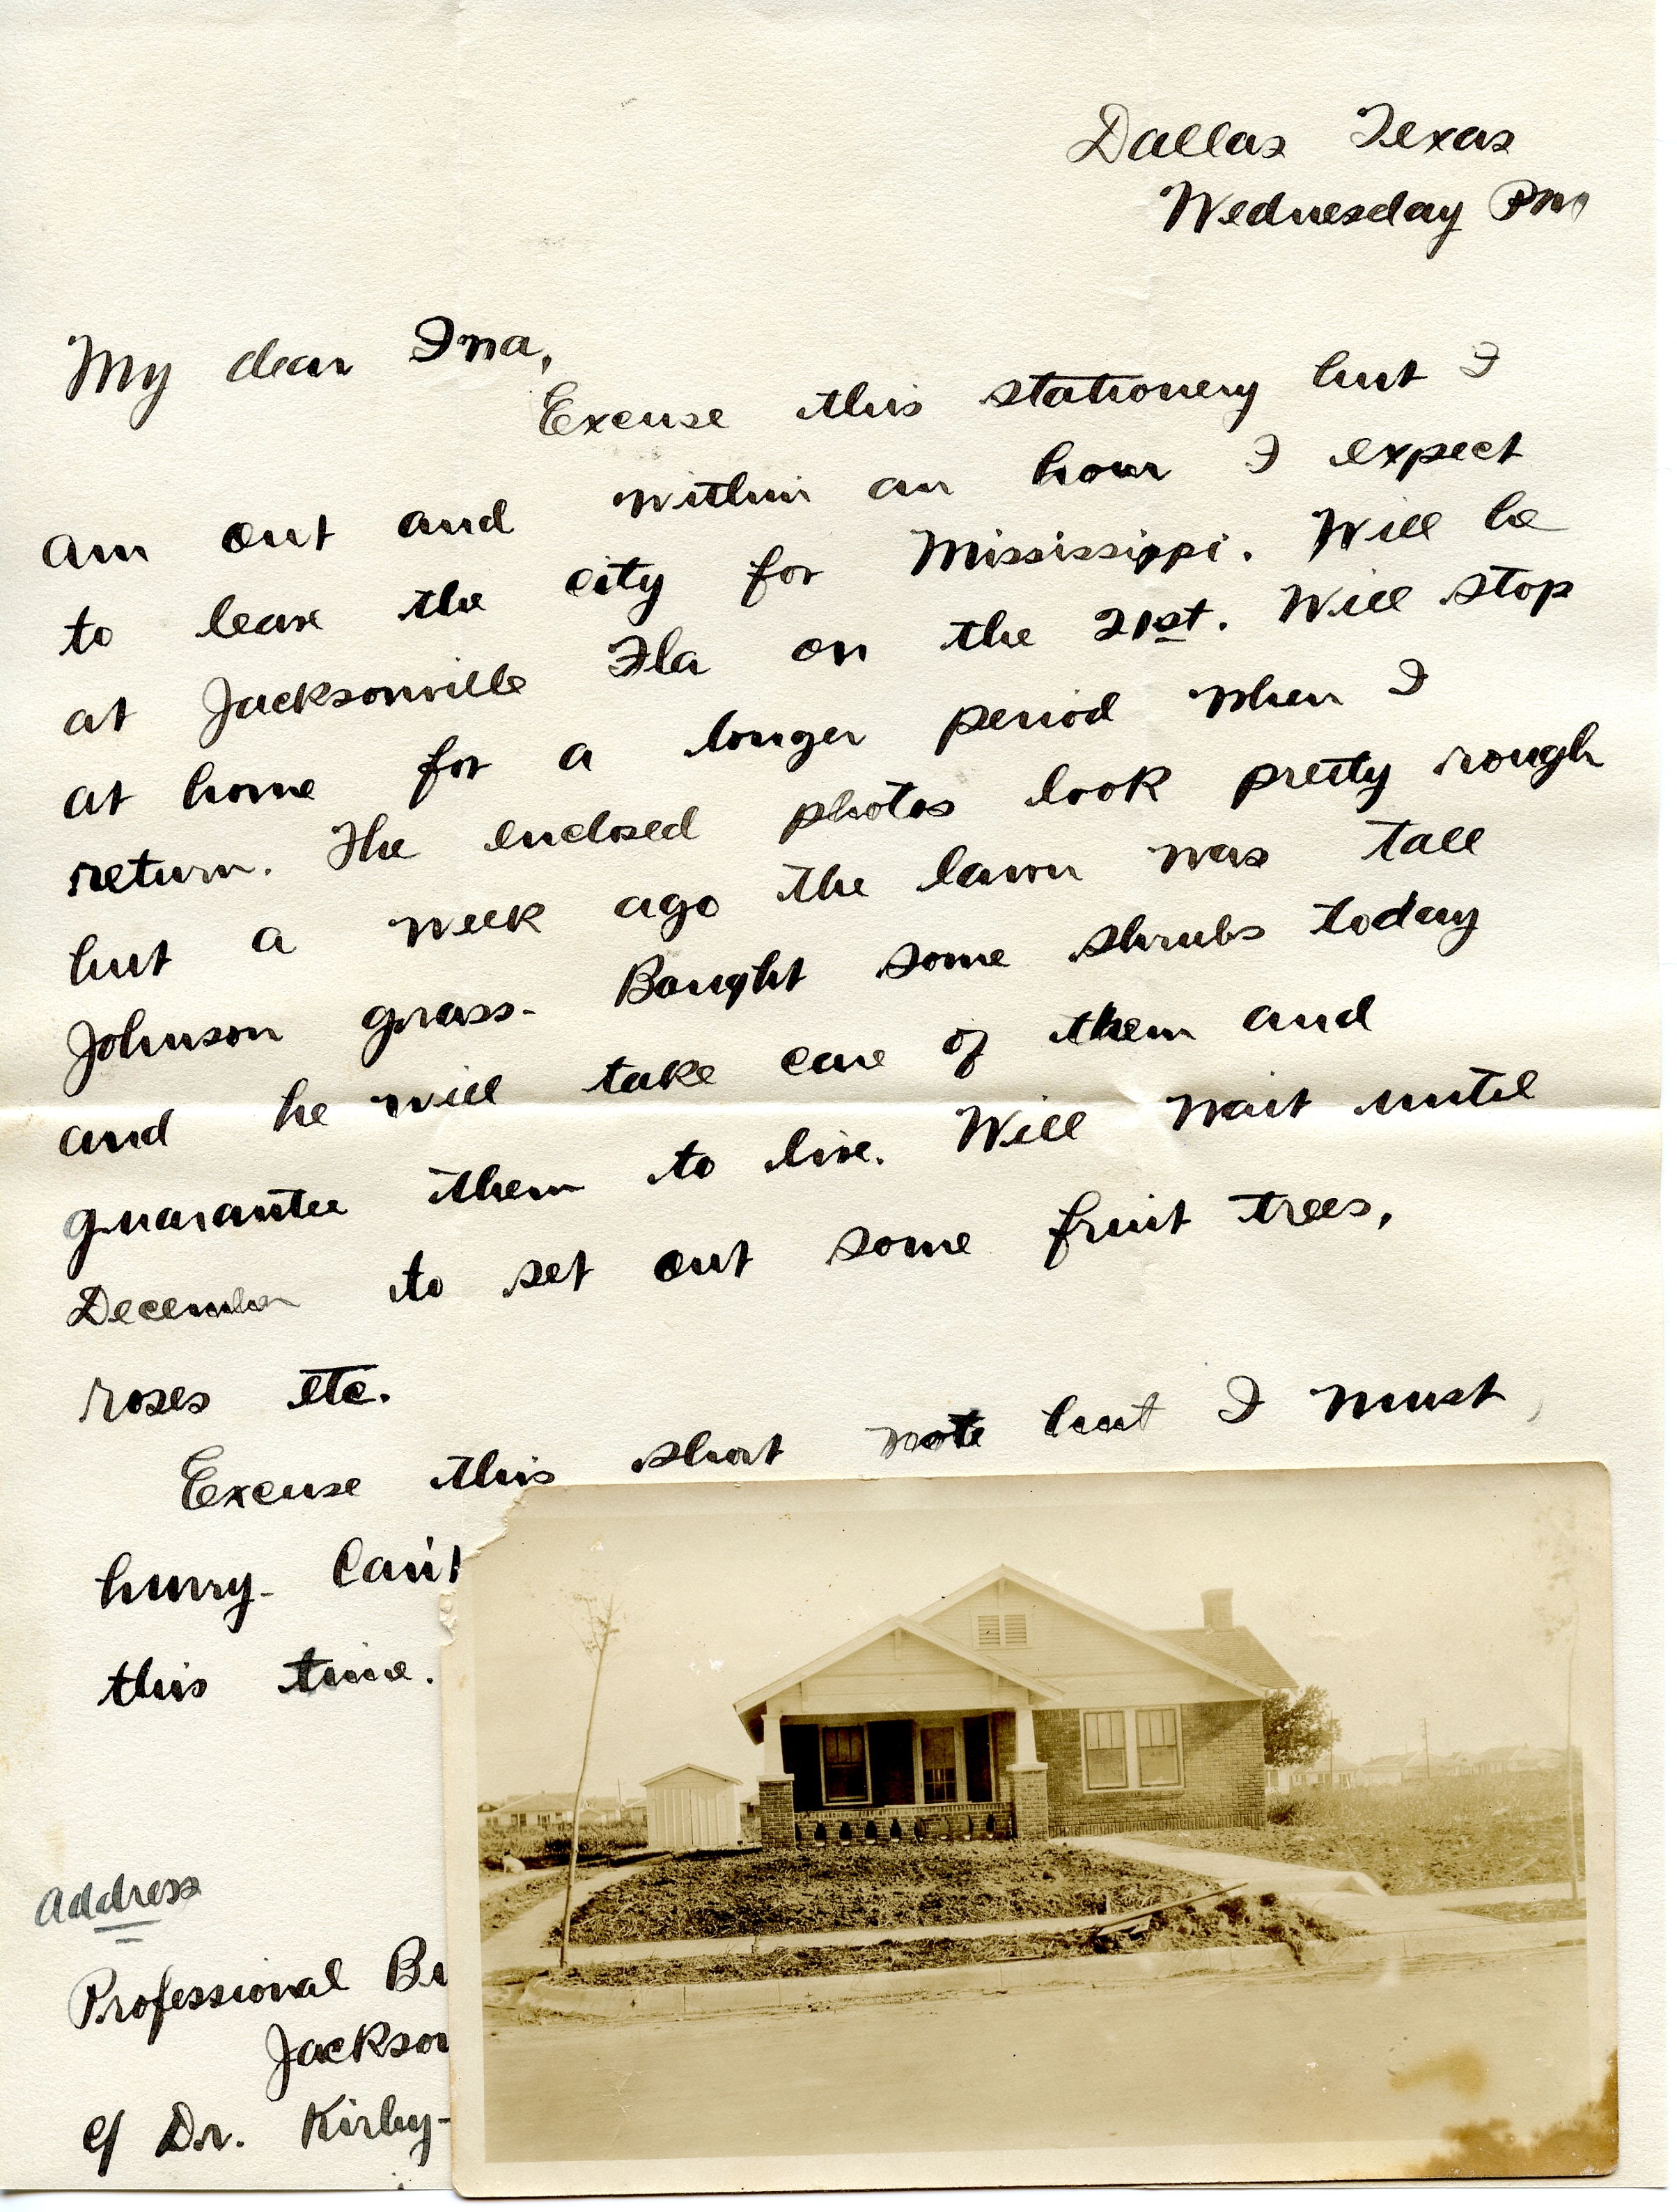 Dallas Texas
Wednesday PM
My dear Ina,
Excuse this stationery but I
am out and within an hour I expect
to leave the city for Mississippi. Will be
at Jacksonville Fla on the 21st. Will stop
at home for a longer period when I
return. The enclosed photos look pretty rough
but a week ago the lawn was tall
Johnson grass- Bought some shrubs today
and he will take care of them and
guarantee them to live. Will wait until
December to set out some fruit trees,
roses etc.
Excuse this short note but I must
hurry- Can't
this time.
Address
Professional Bu
Jackson
c/ Dr. Kirby-